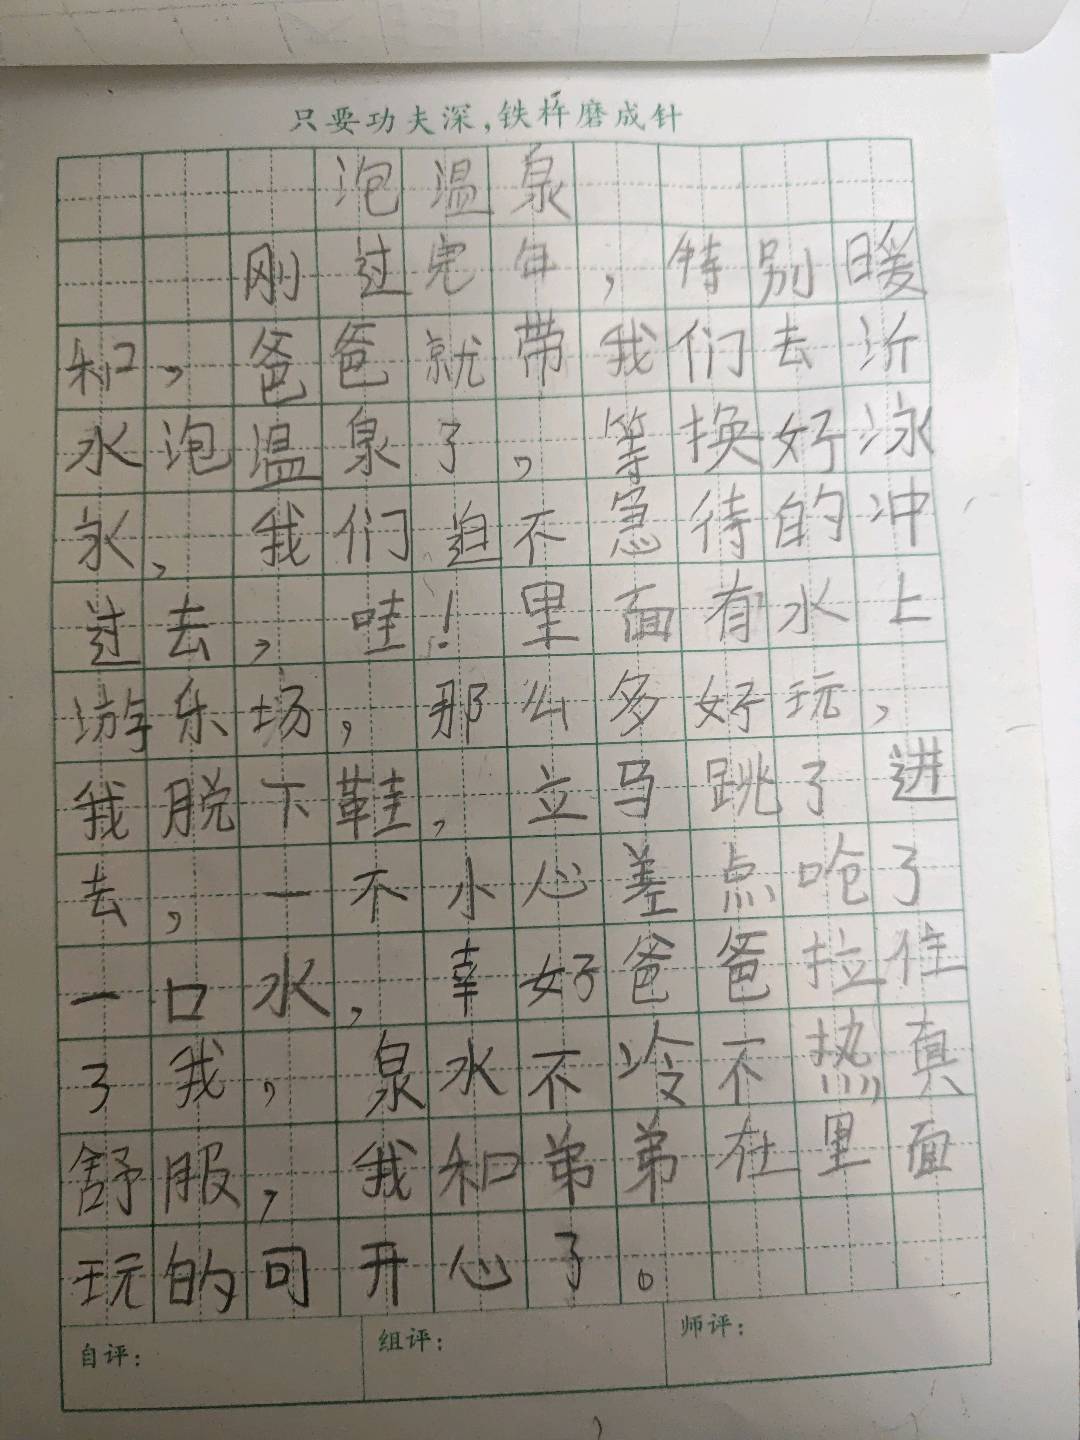 只要功夫深,铁杵磨成针
泡温泉
刚过完年，特别暖
和，爸爸就带我们去沂
水泡温泉了，等换好泳
衣，我们迫不急待的冲
过去，哇！里面有水上
游乐场，那么多好玩，
我脱下鞋，立马跳了进
去，一不小心差点呛了
一口水，幸好爸爸拉住
了我，泉水不冷不热真
舒服，我和弟弟在里面
玩的可开心了。
自评: 组评: 师评: